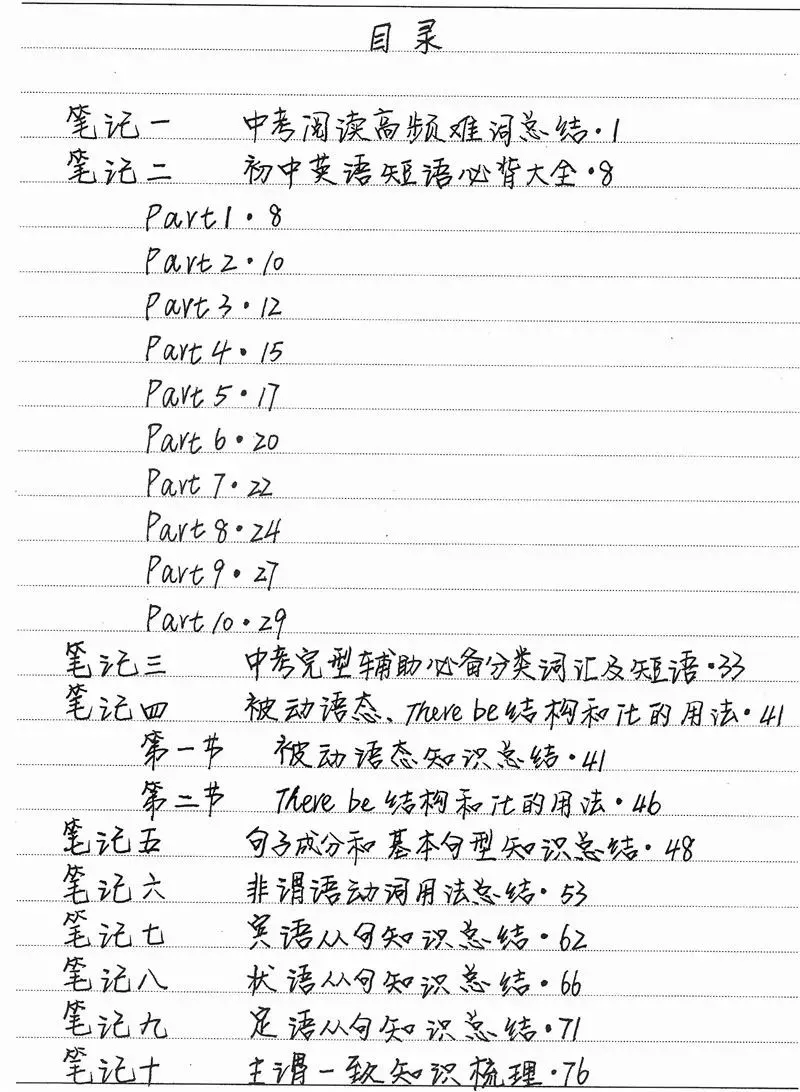 目录
笔记一 中考阅读高频难词总结·1
笔记二 初中英语短语必背大全·8
Part1·8
Part2·10
Part3·12
Part4·15
Part5·17
Part6·20
Part7·22
Part8·24
Part9·27
Part10·29
笔记三 中考完型辅助必备分类词汇及短语·33
笔记四 被动语态、There be结构和it的用法·41
第一节 被动语态知识总结·41
第二节 There be结构和it的用法·46
笔记五 句子成分和基本句型知识总结·48
笔记六 非谓语动词用法总结·53
笔记七 宾语从句知识总结·62
笔记八 状语从句知识总结·66
笔记九 定语从句知识总结·71
笔记十 主谓一致知识梳理·76